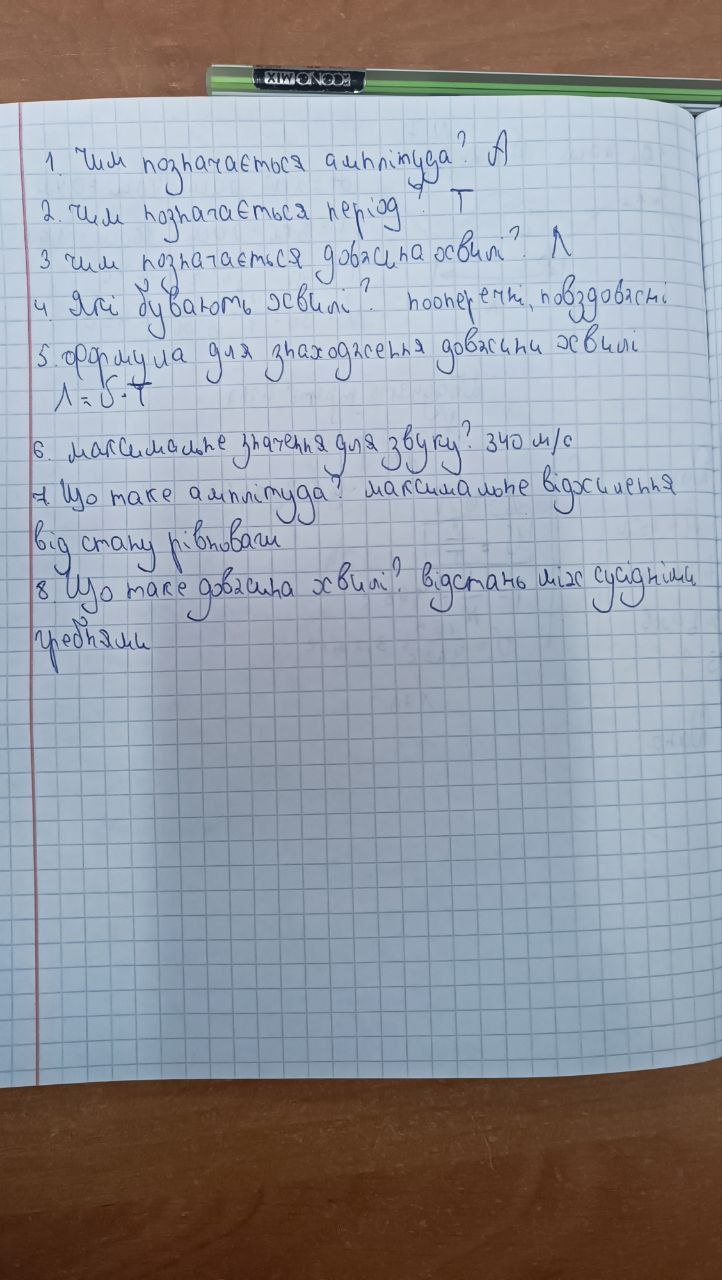 ECONOMIX
1. Чим позначається амплітуда? A
2. Чим позначається період? T
3 чим позначається довжина хвилі? Λ
4. Які бувають хвилі? поперечні, повздовжні
5. Формула для знаходження довжини хвилі
Λ = S · T
6. максимальне значення для звуку? 340 м/с
7. Що таке амплітуда? максимальне відхилення
від стану рівноваги
8. Що таке довжина хвилі? відстань між сусідніми
гребнями